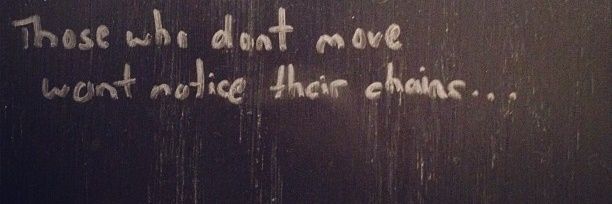 Those who dont move
want notice their chains...